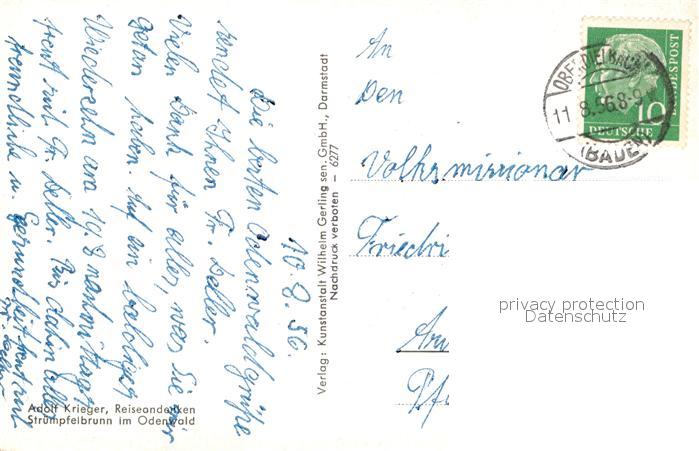 10.8.56.
Die besten Odenwaldgrüße
sendet Ihnen Fr. Deller.
Vielen Dank für alles, was Sie mir
getan haben. Auf ein baldiges
Wiedersehn am 19.8 nachmittags
freut sich Fr. Deller. Bis dahin alles
freundliche u.
Verlag: Kunstanstalt Wilhelm Gerling sen. GmbH., Darmstadt
Nachdruck verboten – 6277
Adolf Krieger, Reiseandenken
Strümpfelbrunn im Odenwald
An
Den
Volksmissionar
Friedri
Pf
DEUTSCHE
BUNDESPOST
10
OBERDIELBACH
11.8.56.8-9
(BADEN)
privacy protection
Datenschutz